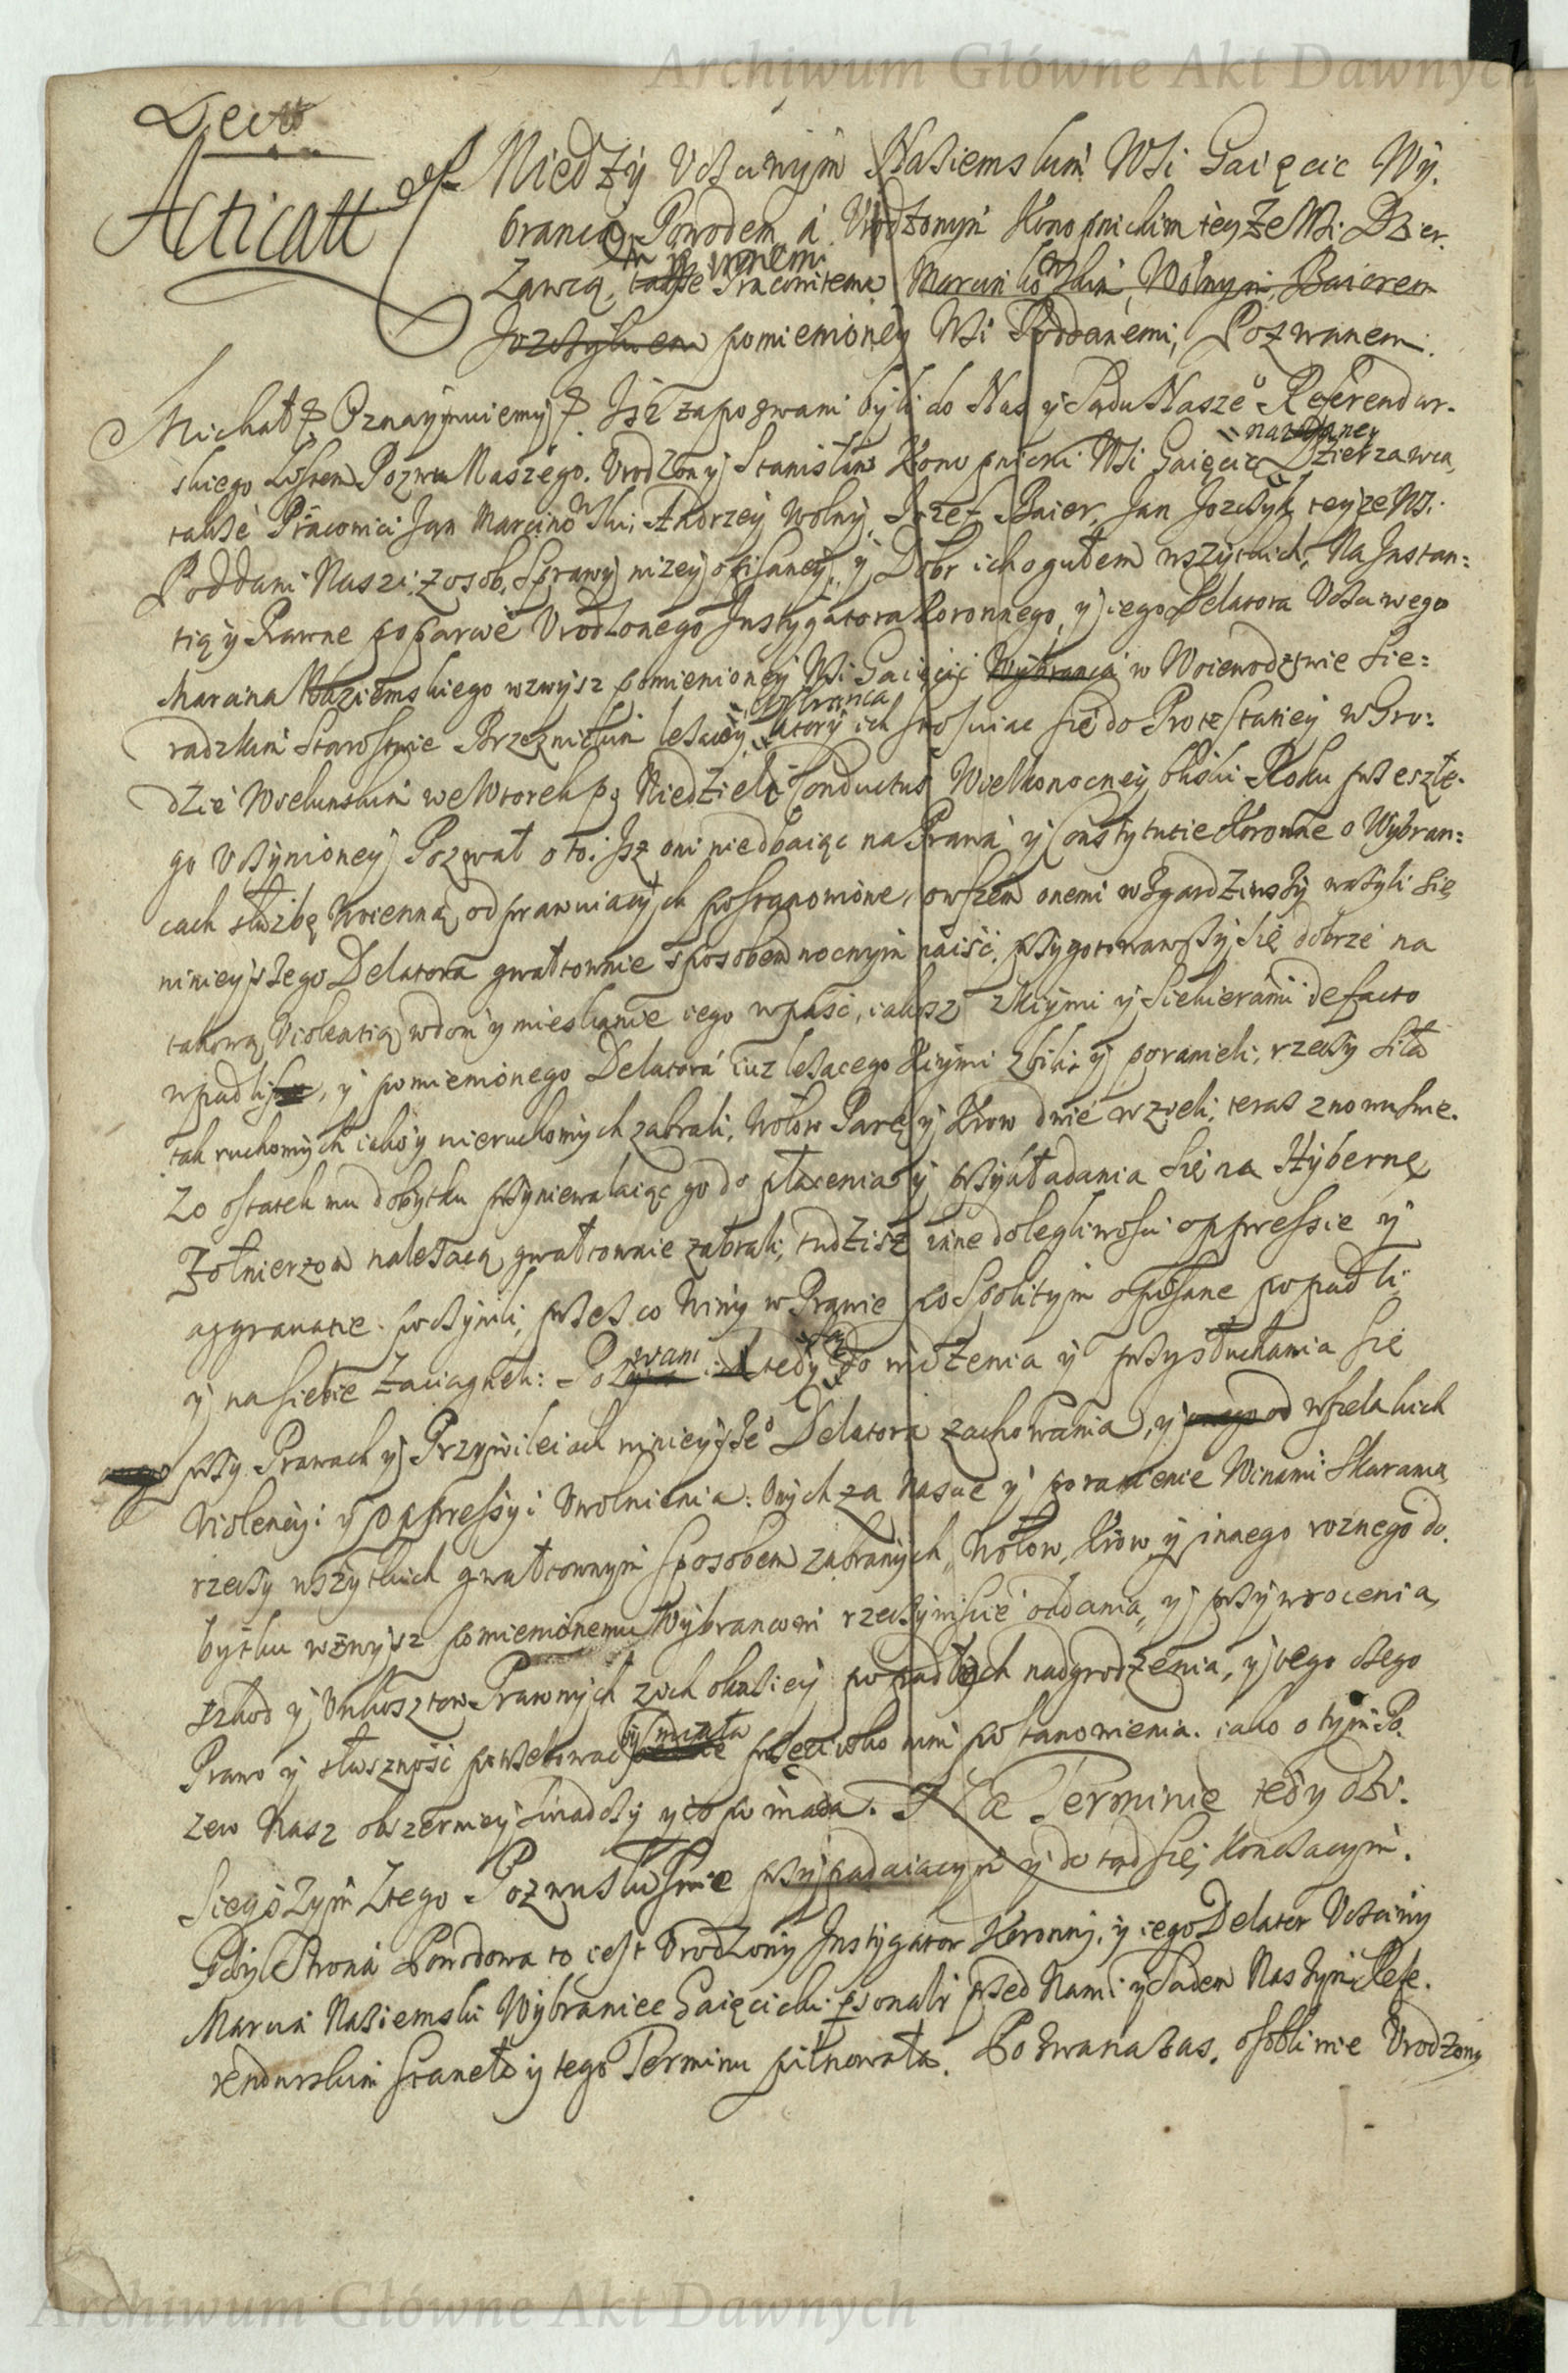 Archiwum Główne Akt Dawnych
Decr
Acticatt
Między Uczciwym Naziemskim Wsi Gaięcic Wy.
brancą Powodem á Urodzonym Konopnickim teyże Wsi Dzier.
innemi
żawcą, także Pracowitemi Marcinkowskim, Wolnym, Baierem
Jozczykiem pomienioney Wsi Poddanemi, Pozwanemi.
Michał Oznaymuiemy Isz zapozwani byli do Nas y Sądu Naszego Referendar.
nazwaney
skiego Listem Pozwu Naszego. Urodzony Stanisław Konopnicki Wsi Gaięcic Dzierzawca,
także Pracowici Jan Marcinowski, Andrzey Wolny, Jozef Baier, Jan Jozczyk teyże Wsi
Poddani Naszi, z osob, Sprawy niżey opisaney, y Dobr ich ogułem wszytkich, Na Instan:
tią y Prawne poparcie Urodzonego Instygatora Koronnego, y iego Delatora Uczciwego
Marcina Naziemskiego wzwysz pomienioney Wsi Gaięcic Wybranca w Woiewodztwie Sie:
Wybranca
radzkim Starostwie Brzeznickim leżącey, ktory ich stosuiac się do Protestatiey w Gro:
dzie Wieluńskim we Wtorek po Niedzieli Conductus Wielkonocney bliski Roku przeszłe.
go Uczynioney Pozwał o to: Isz oni niedbaiąc na Prawa y Constytucie Koronne o Wybran:
cach służbę Woienną odprawuiących postanowione, owszem onemi wzgardziwszy ważyli się
ninieyszego Delatora gwałtownie sposobem nocnym naiść, przygotowawszy się dobrze na
takową Violentią w dom y mieszkanie iego wpaść, iakosz z kiymi y siekierami de facto
wpadli, y pomienionego Delatora iuz leżacego Kiymi zbili y poranieli, rzeczy siła
tak ruchomych iako y nieruchomych zabrali, Wołow Parę y Krow dwie wzieli, teraz znowu swie.
żo ostatek mu dobytku przyniewalaiąc go do płacenia y przykładania się na Hybernę
Zołnierzom należącą gwałtownie zabrali, tudzisz inne dolegliwosci oppressie y
aggravatie poczynili, przez co Winy w Prawie pospolitym opisane popadli
y na siebie zaciągneli: Pozwani tedy są do widzenia y przysłuchania się
przy Prawach y Przywileiach ninieyszego Delatora zachowania, y od wszelakich
Violencyi y oppressyi Uwolnienia: Onych za naście y poranienie Winami skarania
rzeczy wszytkich gwałtownym sposobem zabranych, Wołow, Krow y innego roznego do.
bytku wzwysz pomienionemu Wybrancowi rzeczywiscie oddania, y przywrocenia,
szkod y Unkosztow Prawnych z ich okaziey popadłych nadgrodzenia, y tego czego
by miała
Prawo y słuszność potrzebować przeciwko nim postanowienia. iako o tym Po.
zew Nasz obszerniey swiadczy y to powiada. Na Terminie tedy dzi.
sieyszym z tego Pozwu słusznie przypadaiącym y do tąd się kontaczącym.
Gdy Strona Powodowa to iest Urodzony Instygator Koronny, y iego Delator Uczciwy
Marcin Naziemski Wybraniec Gaięcicki personalr przed Nami y Sadem Naszym Refe.
rendarskim staneła y tego Terminu pilnowała. Pozwana zas, osobliwie Urodzony
Archiwum Główne Akt Dawnych